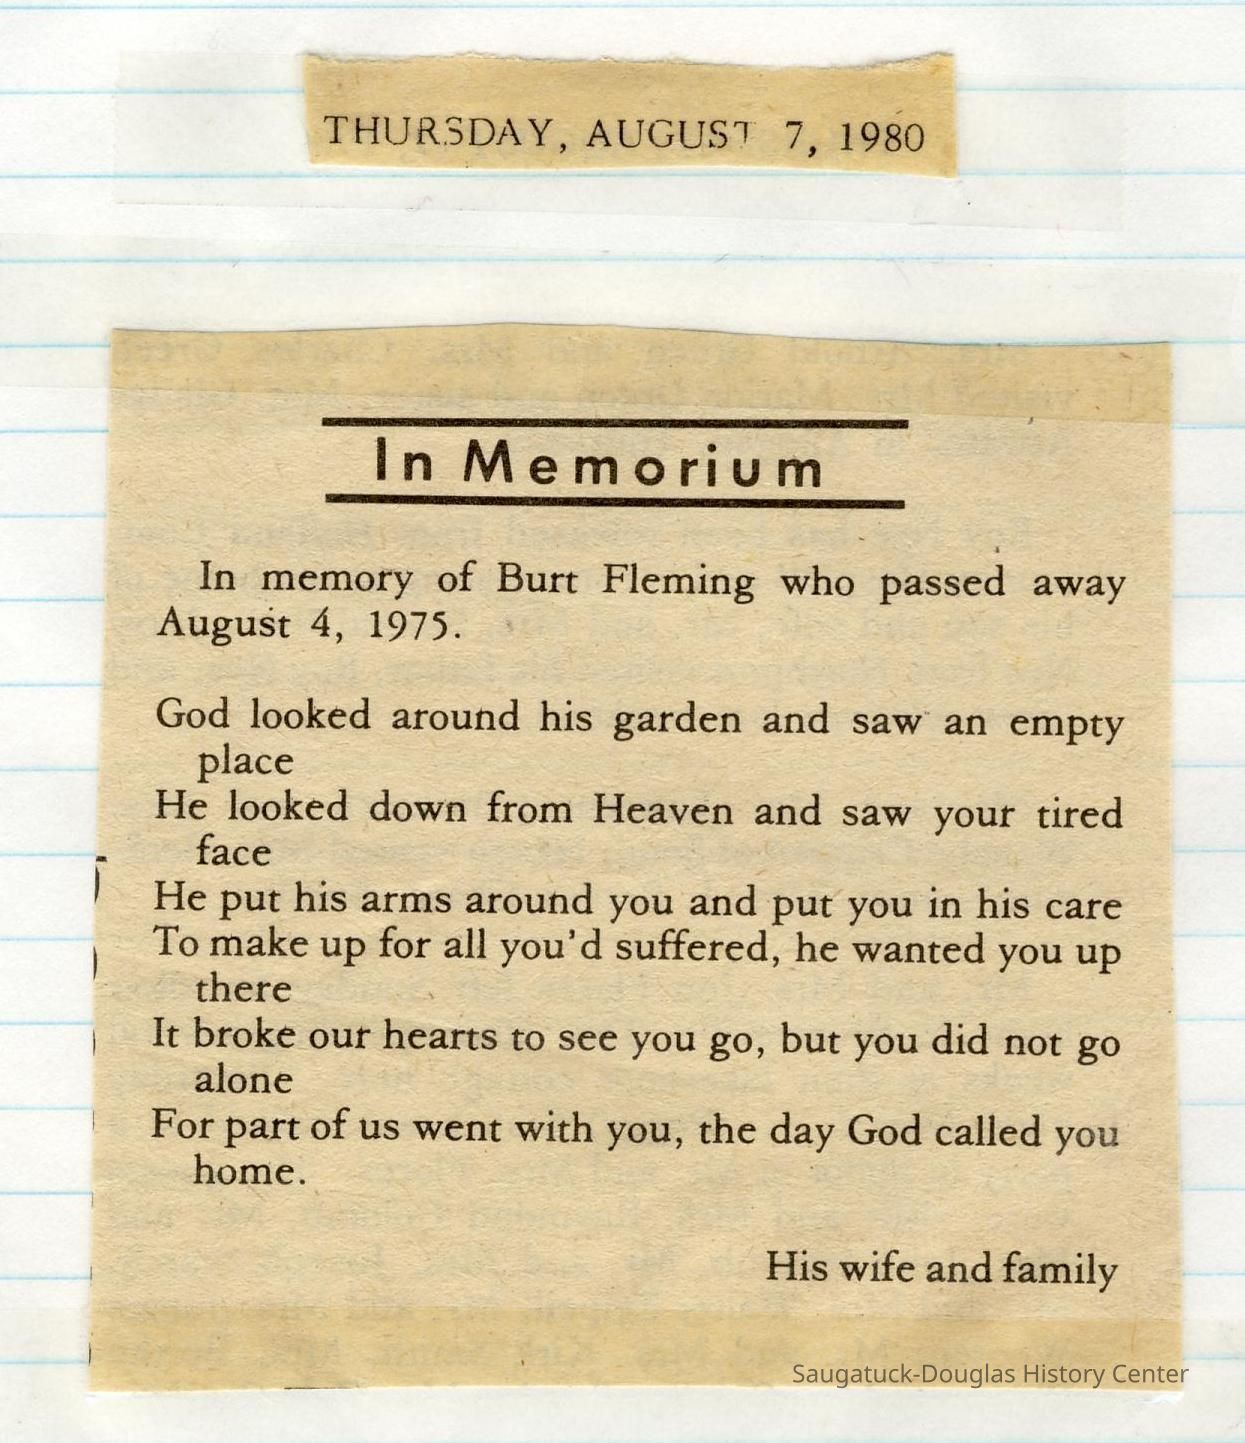 THURSDAY, AUGUST 7, 1980
In Memorium
In memory of Burt Fleming who passed away
August 4, 1975.
God looked around his garden and saw an empty
place
He looked down from Heaven and saw your tired
face
He put his arms around you and put you in his care
To make up for all you'd suffered, he wanted you up
there
It broke our hearts to see you go, but you did not go
alone
For part of us went with you, the day God called you
home.
His wife and family
Saugatuck-Douglas History Center